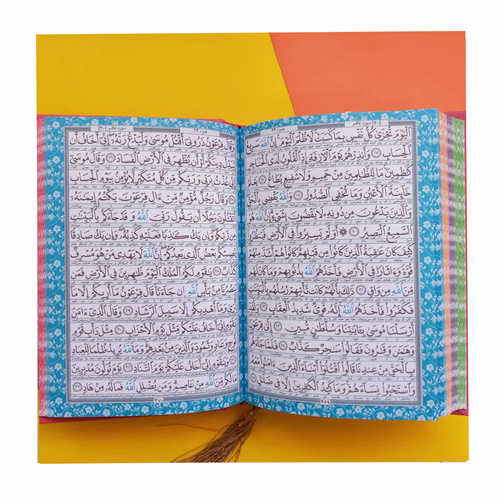 ٱلْيَوْمَ تُجْزَىٰ كُلُّ نَفْسٍ بِمَا كَسَبَتْ لَا ظُلْمَ ٱلْيَوْمَ إِنَّ ٱللَّهَ سَرِيعُ
ٱلْحِسَابِ ﴿١٧﴾ وَأَنذِرْهُمْ يَوْمَ ٱلْآزِفَةِ إِذِ ٱلْقُلُوبُ لَدَى ٱلْحَنَاجِرِ
كَاظِمِينَ مَا لِلظَّالِمِينَ مِنْ حَمِيمٍ وَلَا شَفِيعٍ يُطَاعُ ﴿١٨﴾ يَعْلَمُ
خَائِنَةَ ٱلْأَعْيُنِ وَمَا تُخْفِى ٱلصُّدُورُ ﴿١٩﴾ وَٱللَّهُ يَقْضِى بِٱلْحَقِّ
وَٱلَّذِينَ يَدْعُونَ مِن دُونِهِ لَا يَقْضُونَ بِشَىْءٍ إِنَّ ٱللَّهَ هُوَ
ٱلسَّمِيعُ ٱلْبَصِيرُ ﴿٢٠﴾ أَوَلَمْ يَسِيرُوا۟ فِى ٱلْأَرْضِ فَيَنظُرُوا۟
كَيْفَ كَانَ عَاقِبَةُ ٱلَّذِينَ كَانُوا۟ مِن قَبْلِهِمْ كَانُوا۟ هُمْ أَشَدَّ مِنْهُمْ
قُوَّةً وَآثَارًا فِى ٱلْأَرْضِ فَأَخَذَهُمُ ٱللَّهُ بِذُنُوبِهِمْ وَمَا كَانَ لَهُم
مِّنَ ٱللَّهِ مِن وَاقٍ ﴿٢١﴾ ذَٰلِكَ بِأَنَّهُمْ كَانَت تَّأْتِيهِمْ رُسُلُهُم بِٱلْبَيِّنَاتِ
فَكَفَرُوا۟ فَأَخَذَهُمُ ٱللَّهُ إِنَّهُ قَوِىٌّ شَدِيدُ ٱلْعِقَابِ ﴿٢٢﴾ وَلَقَدْ
أَرْسَلْنَا مُوسَىٰ بِآيَاتِنَا وَسُلْطَانٍ مُّبِينٍ ﴿٢٣﴾ إِلَىٰ فِرْعَوْنَ
وَهَامَانَ وَقَارُونَ فَقَالُوا۟ سَاحِرٌ كَذَّابٌ ﴿٢٤﴾ فَلَمَّا جَاءَهُم
بِٱلْحَقِّ مِنْ عِندِنَا قَالُوا۟ ٱقْتُلُوا۟ أَبْنَاءَ ٱلَّذِينَ آمَنُوا۟ مَعَهُ
وَٱسْتَحْيُوا۟ نِسَاءَهُمْ وَمَا كَيْدُ ٱلْكَافِرِينَ إِلَّا فِى ضَلَالٍ ﴿٢٥﴾
وَقَالَ فِرْعَوْنُ ذَرُونِى أَقْتُلْ مُوسَىٰ وَلْيَدْعُ رَبَّهُ إِنِّى أَخَافُ أَن
يُبَدِّلَ دِينَكُمْ أَوْ أَن يُظْهِرَ فِى ٱلْأَرْضِ ٱلْفَسَادَ ﴿٢٦﴾ وَقَالَ مُوسَىٰ
إِنِّى عُذْتُ بِرَبِّى وَرَبِّكُم مِّن كُلِّ مُتَكَبِّرٍ لَّا يُؤْمِنُ بِيَوْمِ ٱلْحِسَابِ
﴿٢٧﴾ وَقَالَ رَجُلٌ مُّؤْمِنٌ مِّنْ آلِ فِرْعَوْنَ يَكْتُمُ إِيمَانَهُ
أَتَقْتُلُونَ رَجُلًا أَن يَقُولَ رَبِّىَ ٱللَّهُ وَقَدْ جَاءَكُم بِٱلْبَيِّنَاتِ
مِن رَّبِّكُمْ وَإِن يَكُ كَاذِبًا فَعَلَيْهِ كَذِبُهُ وَإِن يَكُ صَادِقًا
يُصِبْكُم بَعْضُ ٱلَّذِى يَعِدُكُمْ إِنَّ ٱللَّهَ لَا يَهْدِى مَنْ هُوَ مُسْرِفٌ
كَذَّابٌ ﴿٢٨﴾ يَا قَوْمِ لَكُمُ ٱلْمُلْكُ ٱلْيَوْمَ ظَاهِرِينَ فِى ٱلْأَرْضِ فَمَن
يَنصُرُنَا مِن بَأْسِ ٱللَّهِ إِن جَاءَنَا قَالَ فِرْعَوْنُ مَا أُرِيكُمْ إِلَّا مَا
أَرَىٰ وَمَا أَهْدِيكُمْ إِلَّا سَبِيلَ ٱلرَّشَادِ ﴿٢٩﴾ وَقَالَ ٱلَّذِى آمَنَ
يَا قَوْمِ إِنِّى أَخَافُ عَلَيْكُم مِّثْلَ يَوْمِ ٱلْأَحْزَابِ ﴿٣٠﴾ مِثْلَ دَأْبِ قَوْمِ
نُوحٍ وَعَادٍ وَثَمُودَ وَٱلَّذِينَ مِن بَعْدِهِمْ وَمَا ٱللَّهُ يُرِيدُ ظُلْمًا لِّلْعِبَادِ
﴿٣١﴾ وَيَا قَوْمِ إِنِّى أَخَافُ عَلَيْكُمْ يَوْمَ ٱلتَّنَادِ ﴿٣٢﴾ يَوْمَ تُوَلُّونَ مُدْبِرِينَ
مَا لَكُم مِّنَ ٱللَّهِ مِنْ عَاصِمٍ وَمَن يُضْلِلِ ٱللَّهُ فَمَا لَهُ مِنْ هَادٍ ﴿٣٣﴾